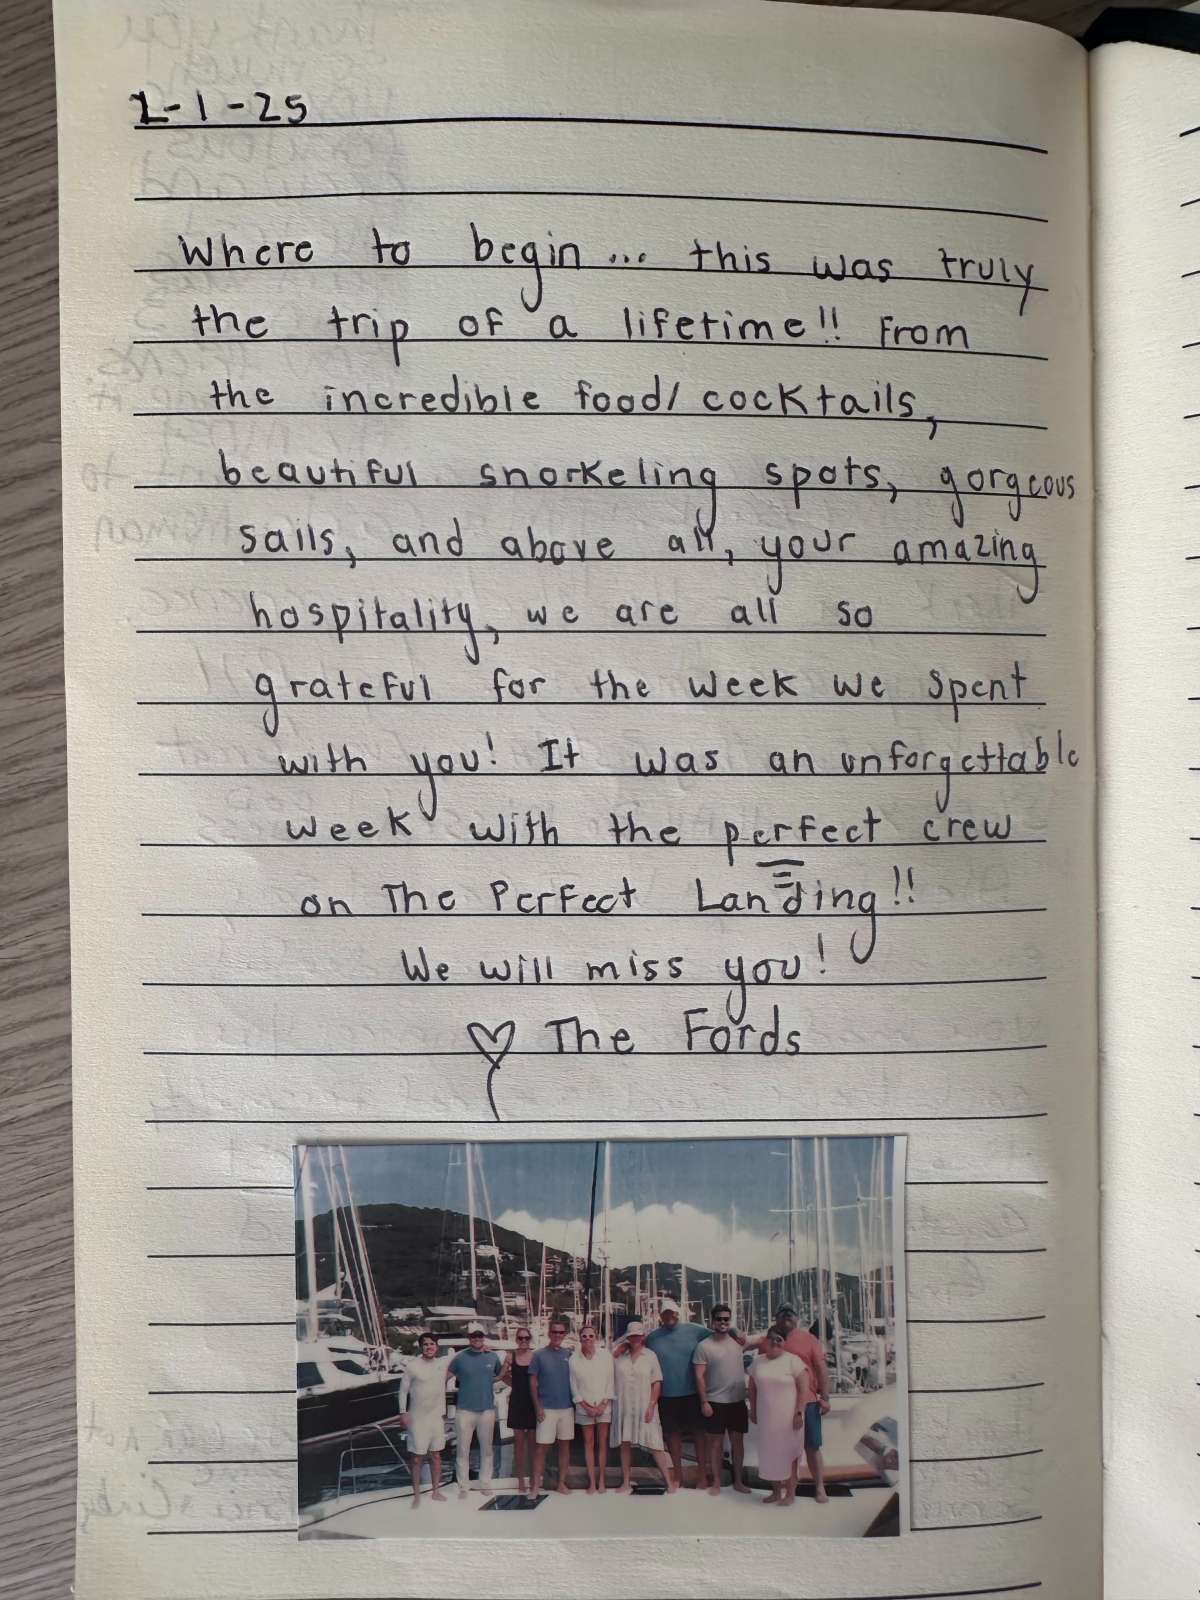 2-1-25
Where to begin... this was truly
the trip of a lifetime!! From
the incredible food/cocktails,
beautiful snorkeling spots, gorgeous
sails, and above all, your amazing
hospitality, we are all so
grateful for the week we spent
with you! It was an unforgettable
week with the perfect crew
on The Perfect Landing!!
We will miss you!
♡ The Fords